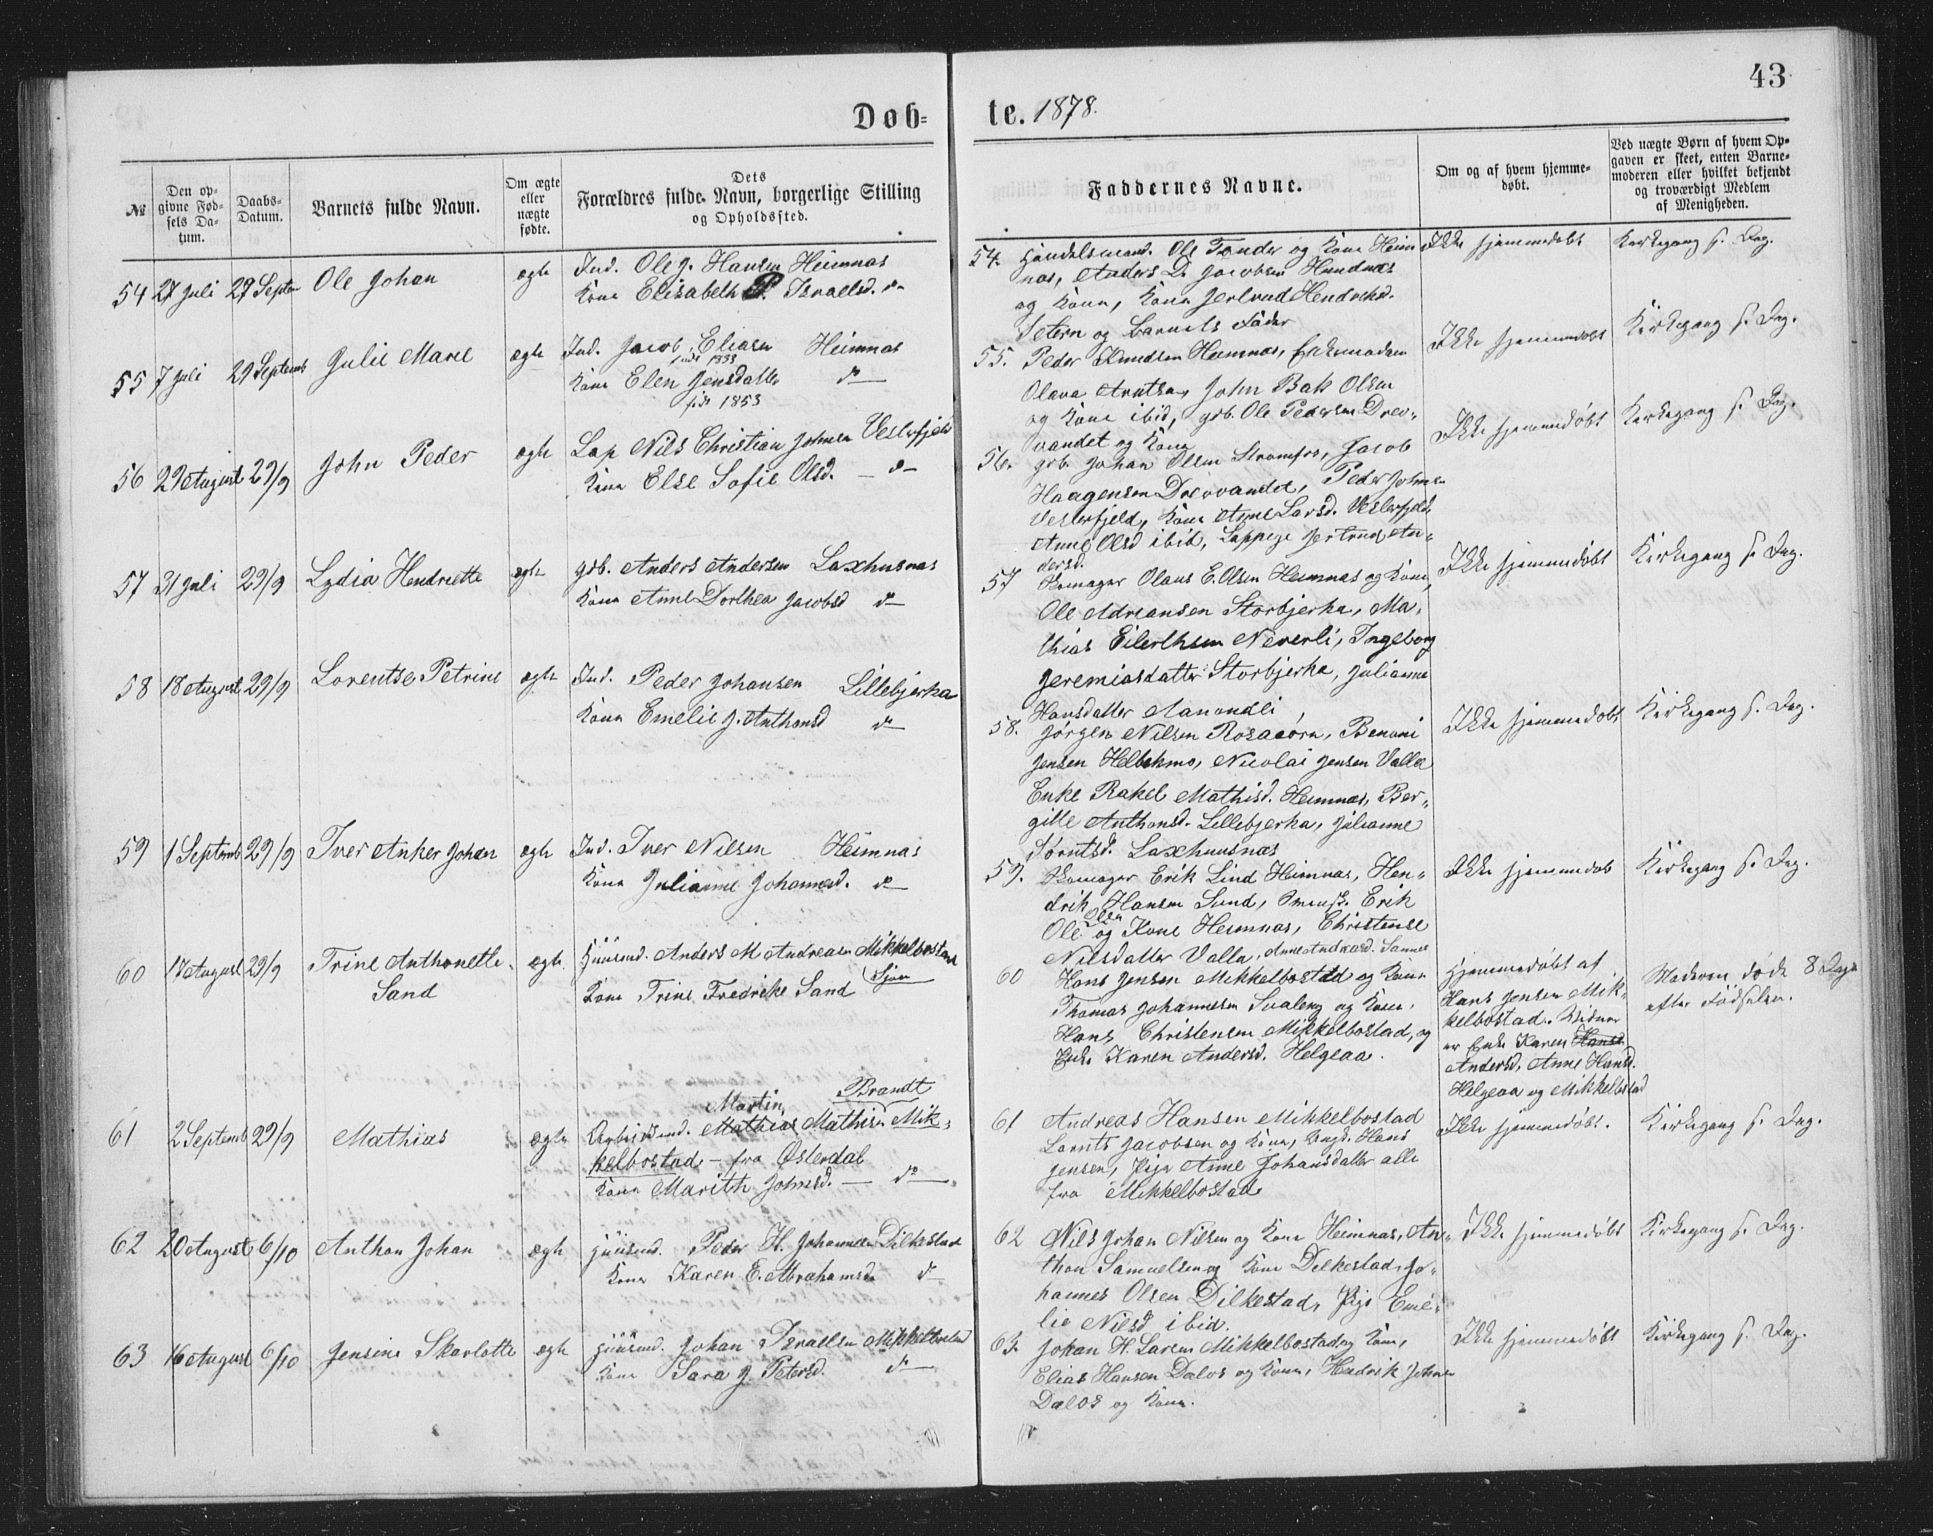 43
Døb-
te. 1878.
№
Den op-
givne Fød-
sels Da-
tum.
Daabs-
Datum.
Barnets fulde Navn.
Om ægte
eller
nægte
fødte.
Dets
Forældres fulde Navn, borgerlige Stilling
og Opholdssted.
Faddernes Navne.
Om og af hvem hjemme-
døbt.
Ved nægte Børn af hvem Op-
gaven er skeet, enten Barne-
moderen eller hvilket bekjendt
og troværdigt Medlem
af Menigheden.
54 27 Juli 29 Septem Ole Johan ægte Ind. Ole J. Hansen Heimnas
Kone Elisabeth P. Israelsd. do
54. Handelsmand. Ole Tander og Kone Heim
nas, Anders D. Jacobsen Hundnæs
og Kone, Kone Jertrud Hendriksd.
Setern og Barnets Fader
Ikke hjemmedøbt
Kirkegang s. Dag.
55 7 Juli 29 Septemb Julie Marie ægte Ind. Jacob Eliasen Heimnas
født 1853
Kone Elen Jensdatter do
født 1853
55. Peder Knudsen Heimnas,
Olava Arntsen, John Bak Olsen
og Kone ibid, gdb. Ole Pedersen Drev-
vandet og Kone
Ikke hjemmedøbt
Kirkegang s. Dag.
56 29 August 29/9 John Peder ægte Lap Nils Christian Johnsen Vesterfjeld
Kone Else Sofie Olsd. — do
56. gdb. Johan Olsen Strømfors, Jacob
Haagensen Drevvandet, Peder Johnsen
Vesterfjeld, Kone Anne Larsd. Vesterfjeld,
Anne Olsd ibid, Lappige Jertrud An-
dersd.
Ikke hjemmedøbt
Kirkegang s. Dag.
57 31 Juli 29/9 Lydia Hendriette ægte gdb. Anders Andersen Laxhusnas
Kone Anne Dorthea Jacobsd do
57 Skomager Olaus E. Olsen Heimnas og Kone,
Ole Adriansen Storbjerka, Ma-
thias Eilerthsen Neverli, Ingeborg
Jeremiasdatter Storbjerka, Julianne
Hansdatter Aanondli
Ikke hjemmedøbt
Kirkegang s. Dag.
58 18 August 29/9 Lorentse Petrine ægte Ind. Peder Johansen Lillebjerka
Kone Emelie J. Anthonsd do
58. Jørgen Nilsen Rosaaørn, Benoni
Jensen Hellehmo, Nicolai Jensen Valla
Enke Rakel Mathisd. Heimnas, Ber-
gitte Anthonsd. Lillebjerka, Julianne
Sørntsd. Laxhuusnæs
Ikke hjemmedøbt
Kirkegang s. Dag.
59 1 Septemb 29/9 Iver Anker Johan ægte Ind. Iver Nilsen Heimnas
Kone Julianne Johannesd. do
59. Skomager Erik Lind Heimnas, Hen-
drik Hansen Sund, Erik
Ole Olsen og Kone Heimnas, Christense
Nilsdatter Valla, Anne Andreasd. Samme
Ikke hjemmedøb
Kirkegang s. Dag.
60 17 August 29/9 Trine Anthonette ægte Huusmd. Anders M Andreasen Mikkelbostad
Sand Kone Trine Fredrike Sand (Sjøen
60 Hans Jensen Mikkelbostad og Kone
Thomas Johannesen Svaleng og Kone,
Hans Christensen Mikkelbostad, og
Enke Karen Andersd. Helgeaa.
Hjemmedøbt af
Hans Jensen Mik-
kelbostad. Vidner
er Enke Karen Hansd.
Andersd, Anne Hansd.
Helgeaa og Mikkelbostad
Moderen døde 8 Dage
efter Fødselen.
61 2 Septemb 29/9 Mathias ægte Martin Brandt
Arbeidsmd. Mathias Mathisen Mik-
kelbostad — fra Østerdal
Kone Marith Johnsd. — do
61 Andreas Hansen Mikkelbostad
Lornts Jacobsen og Kone, Ungk. Hans
Jensen, Pige Anne Johansdatter alle
fra Mikkelbostad
Ikke hjemmedøbt.
Kirkegang s. Dag.
62 20 August 6/10 Anthon Johan ægte Huusmd. Peder H. Johannesen Dilkestad
Kone Karen E. Abrahamsd. do
62 Nils Johan Nilsen og Kone Heimnas, An-
thon Samuelsen og Kone Dilkestad, Jo-
hannes Olsen Dilkestad, Pige Eme-
lie Nilsd ibid.
Ikke hjemmedøbt
Kirkegang s. Dag.
63 16 August 6/10 Jensine Skarlotte ægte Huusmd. Johan Israelsen Mikkelbostad
Kone Sara J. Petersd. do
63. Johan H. Larsen Mikkelbostad og Kone,
Elias Hansen Dalos og Kone, Hendrik Johnsen
Dalos og Kone.
Ikke hjemmedøbt
Kirkegang s. Dag.